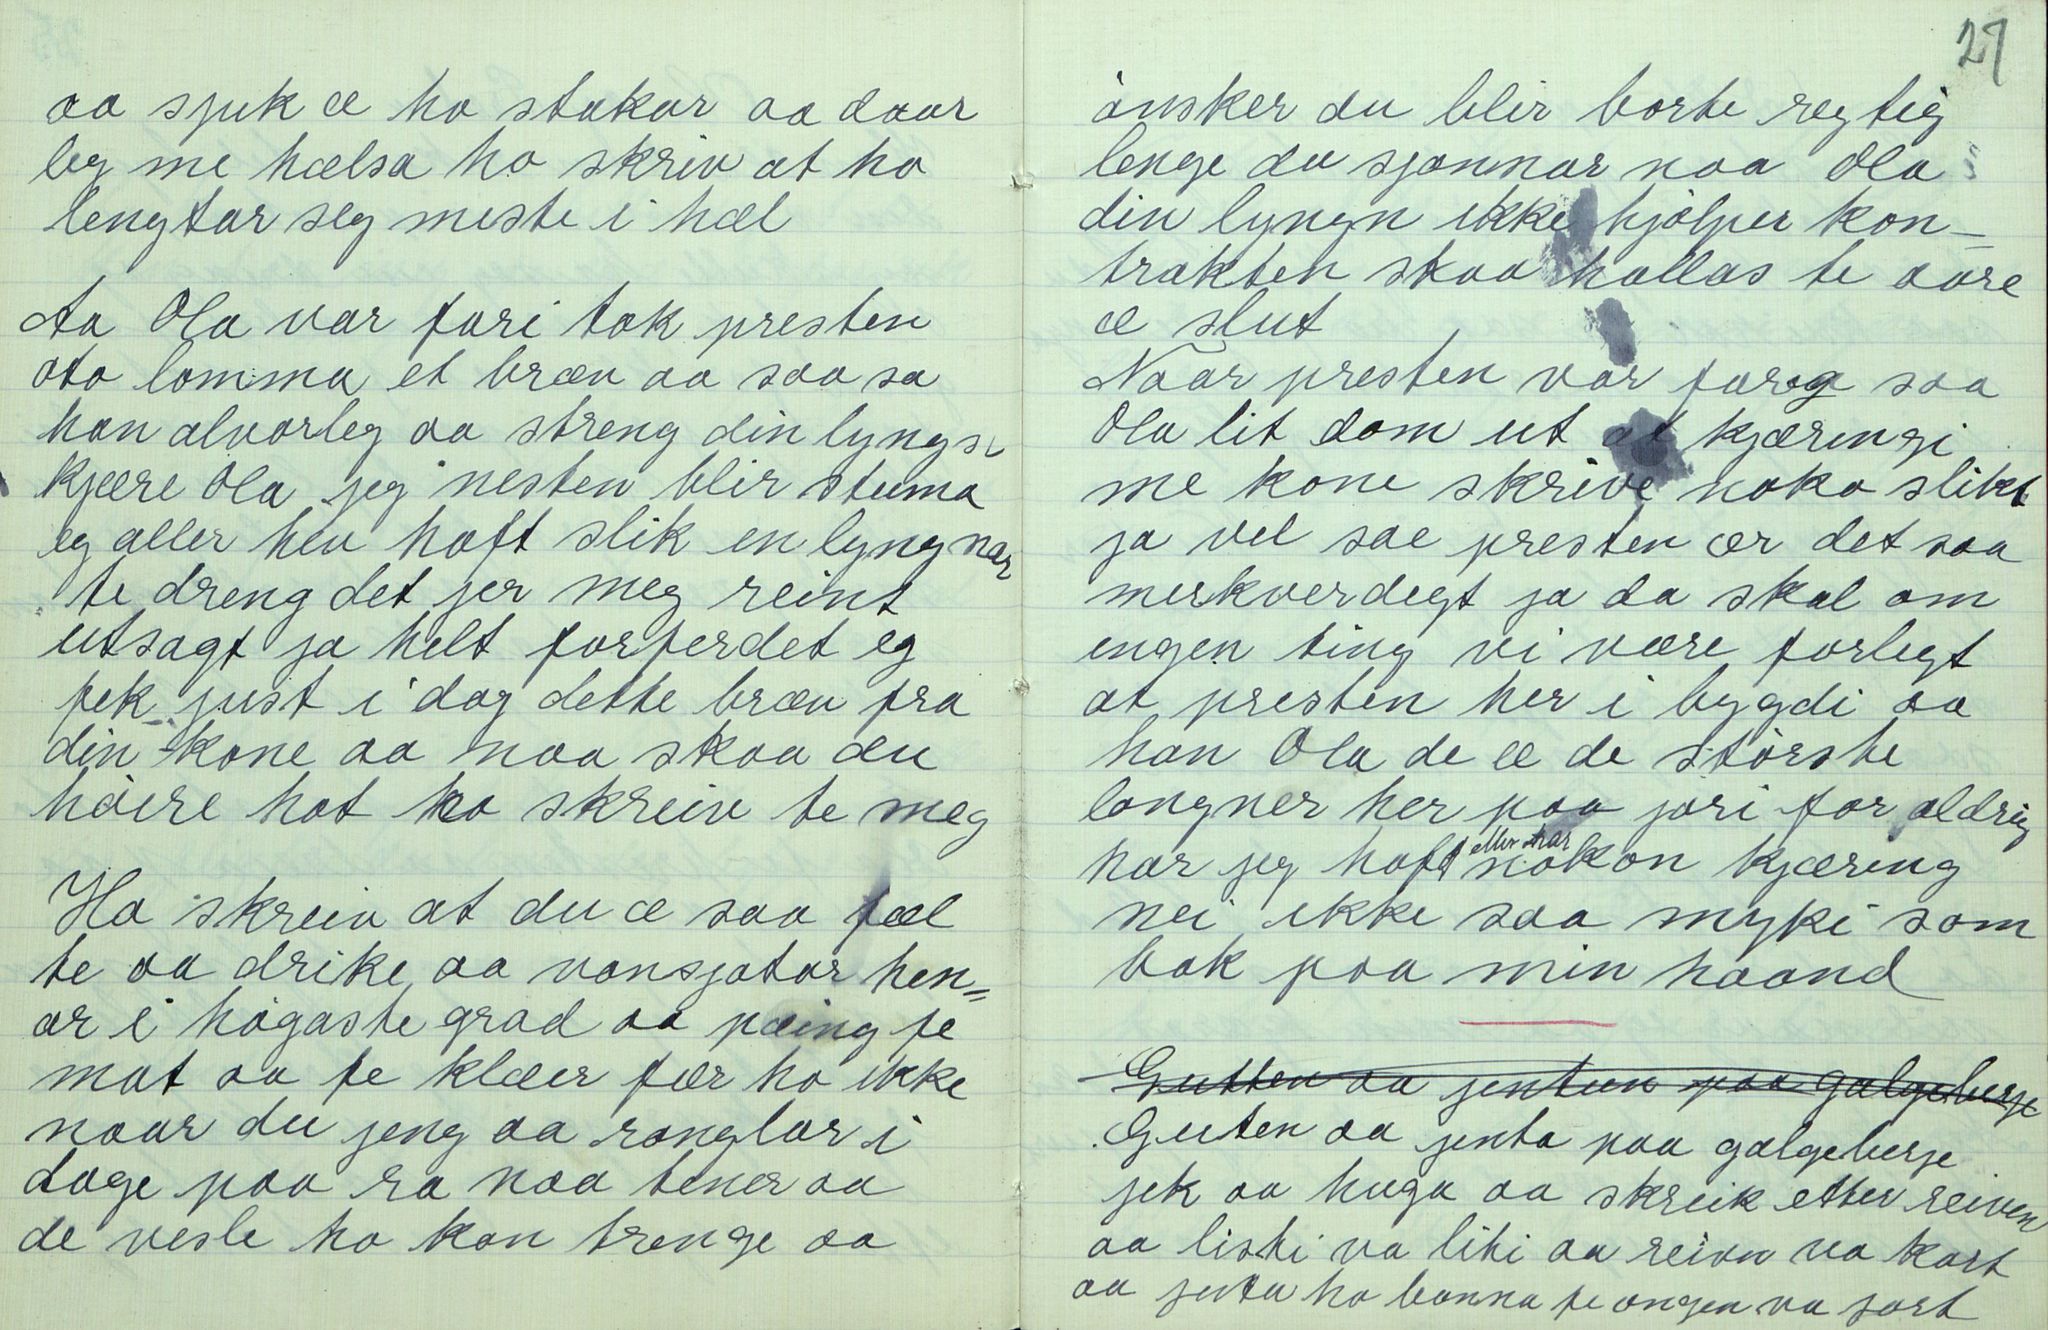 aa sjuk æ ho stakar aa daar
leg me hælsa ho skriv at ho
lengtar seg meste i hæl
Aa Ola var fari tok presten
oto lomma et bræv aa saa sa
han alvorleg aa streng din lyngs
kjære Ola jeg nesten blir stuma
eg aller hev haft slik en lyng nar
te dreng det jer meg reint
utsagt ja helt forferdet eg
fek just i dag dette bræv fra
din kone aa naa skaa du
høire hot ho skreiv te meg
Ho skreiv at du æ saa fæl
te aa drike aa vansjøtar hen=
ar i høgaste grad aa pæing te
mat aa te klæer fær ho ikke
naar du jeng aa ranglar i
dage paa ra naa tener aa
de vesle ho kan trenge aa
27
ønsker du blir borte regtig
lenge du sjønnar naa Ola
din lyngn ikke hjølper kon-
trakten skaa hallas te aare
æ slut
Naar presten var færog saa
Ola lit dom ut at kjæringi
me kone skrive noko slikt
ja vel sae presten ær det saa
merkverdegt ja da skal om
engen ting vi være forlegt
at presten her i bygdi aa
han Ola de æ de største
longner her paa jori for aldrig
har jeg haft eller har nokon kjæring
nei ikke saa myki som
bak paa min haand
Gutten aa jentun paa galgeberje
Guten aa jenta paa galgeberje
jek aa huga aa skreik etter reiven
aa listi va liti aa reivn va kort
aa jenta ho banna te ongen va jort